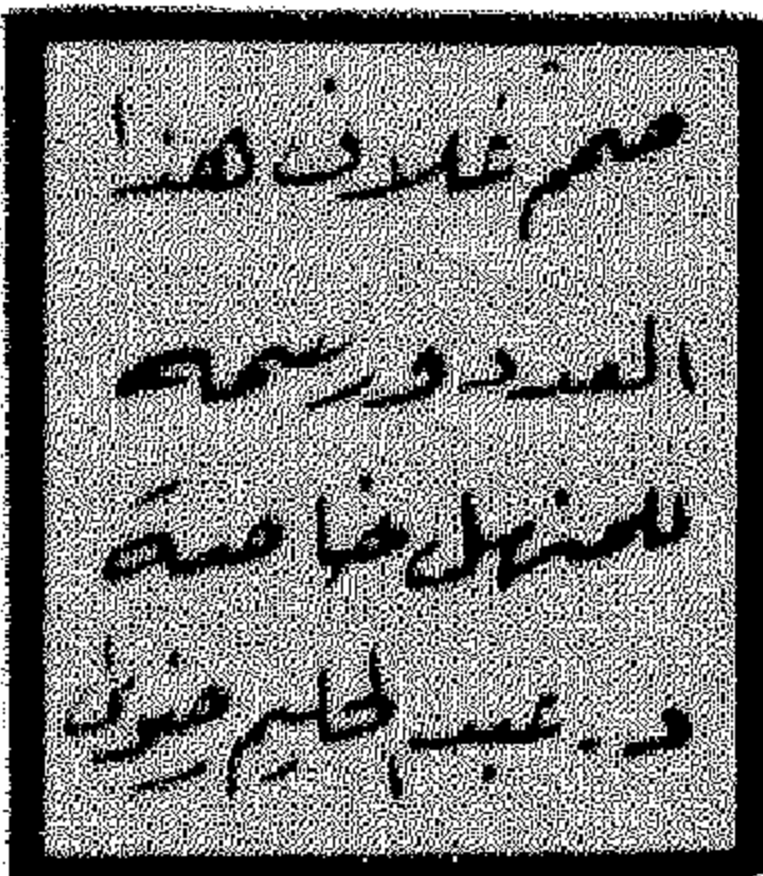 صمم غلاف هذا
العدد ورسمه
للمنهل خاصة
د. عبد الحليم رضوى